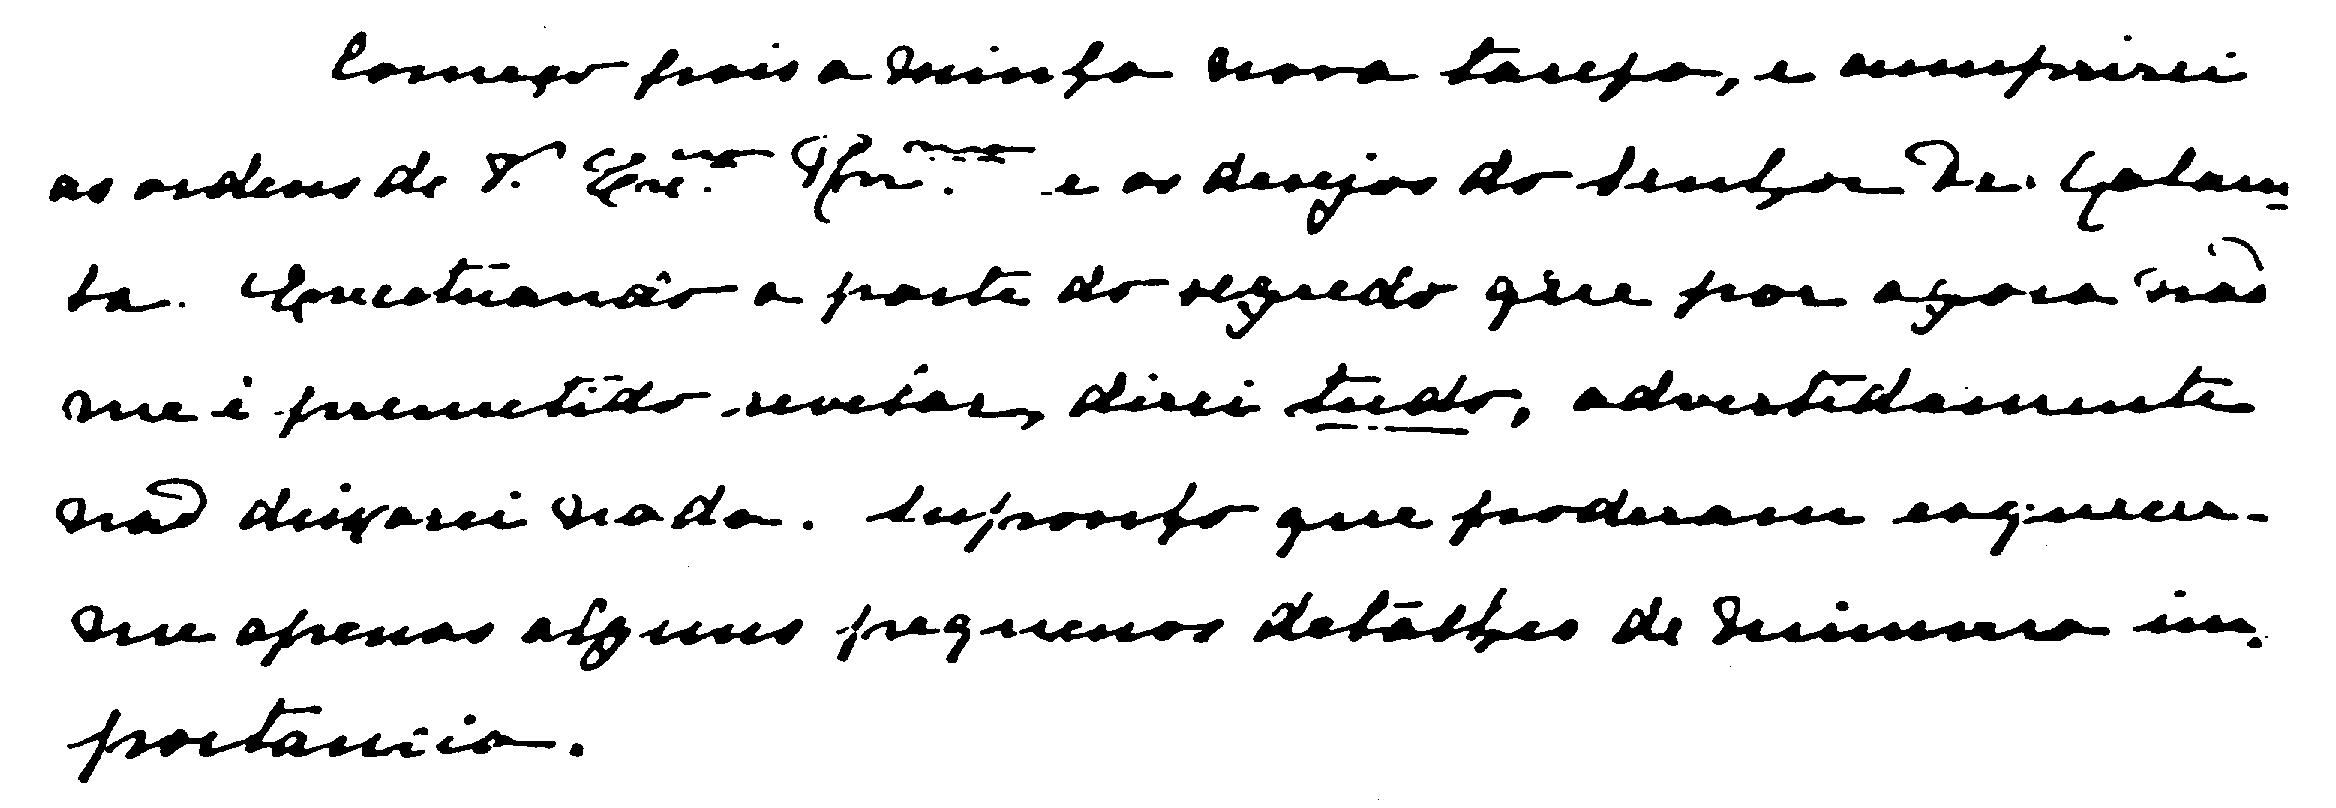 Começo pois a minha nova tarefa, e cumprirei
as ordens de V. Ex.ma Rev.ma e os desejos do Senhor De. Galam-
ta. Exceptuando a parte do segredo que por agora não
me é premetido revelar, direi tudo, advertidamente
não deixarei nada. Supposto que poderam esquecer-
me apenas alguns pequenos detalhes de minima im-
portancia.